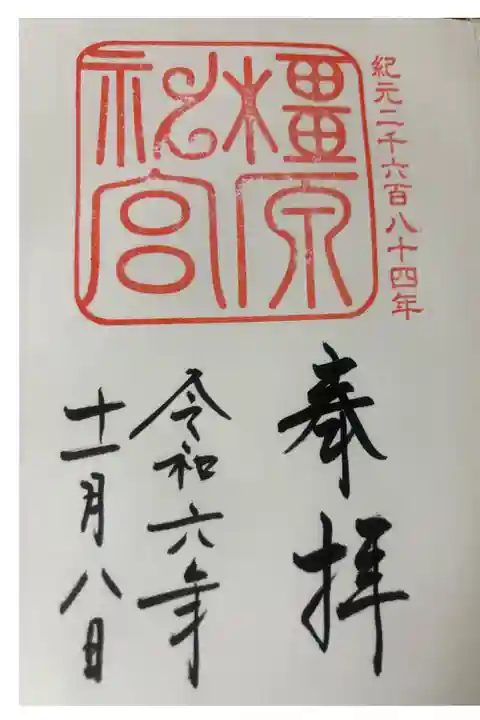 紀元二千六百八十四年
橿原神宮
奉拝
令和六年
十一月八日